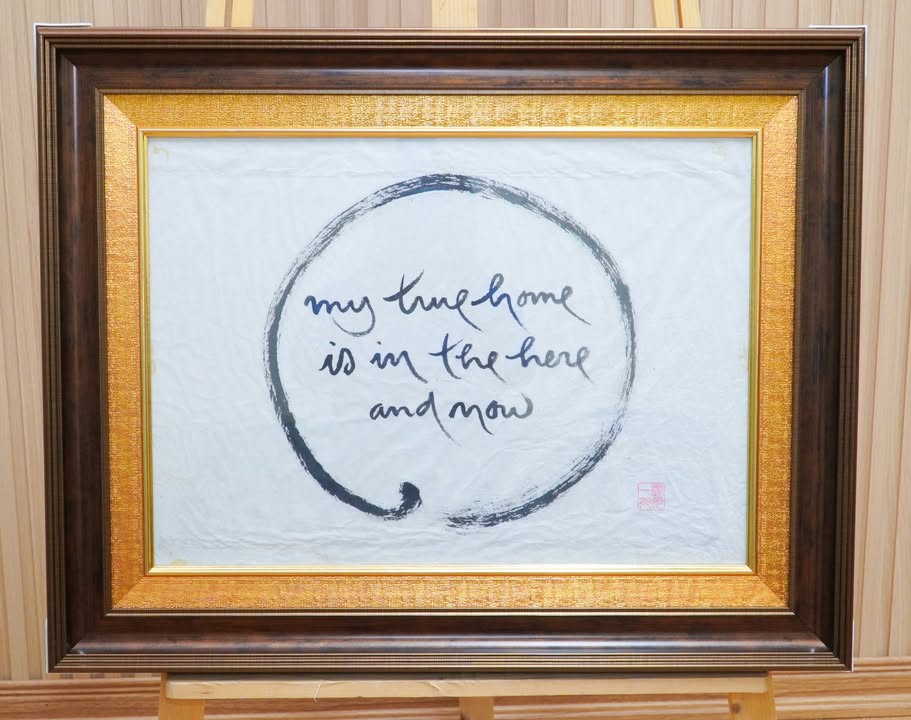 my true home
is in the here
and now